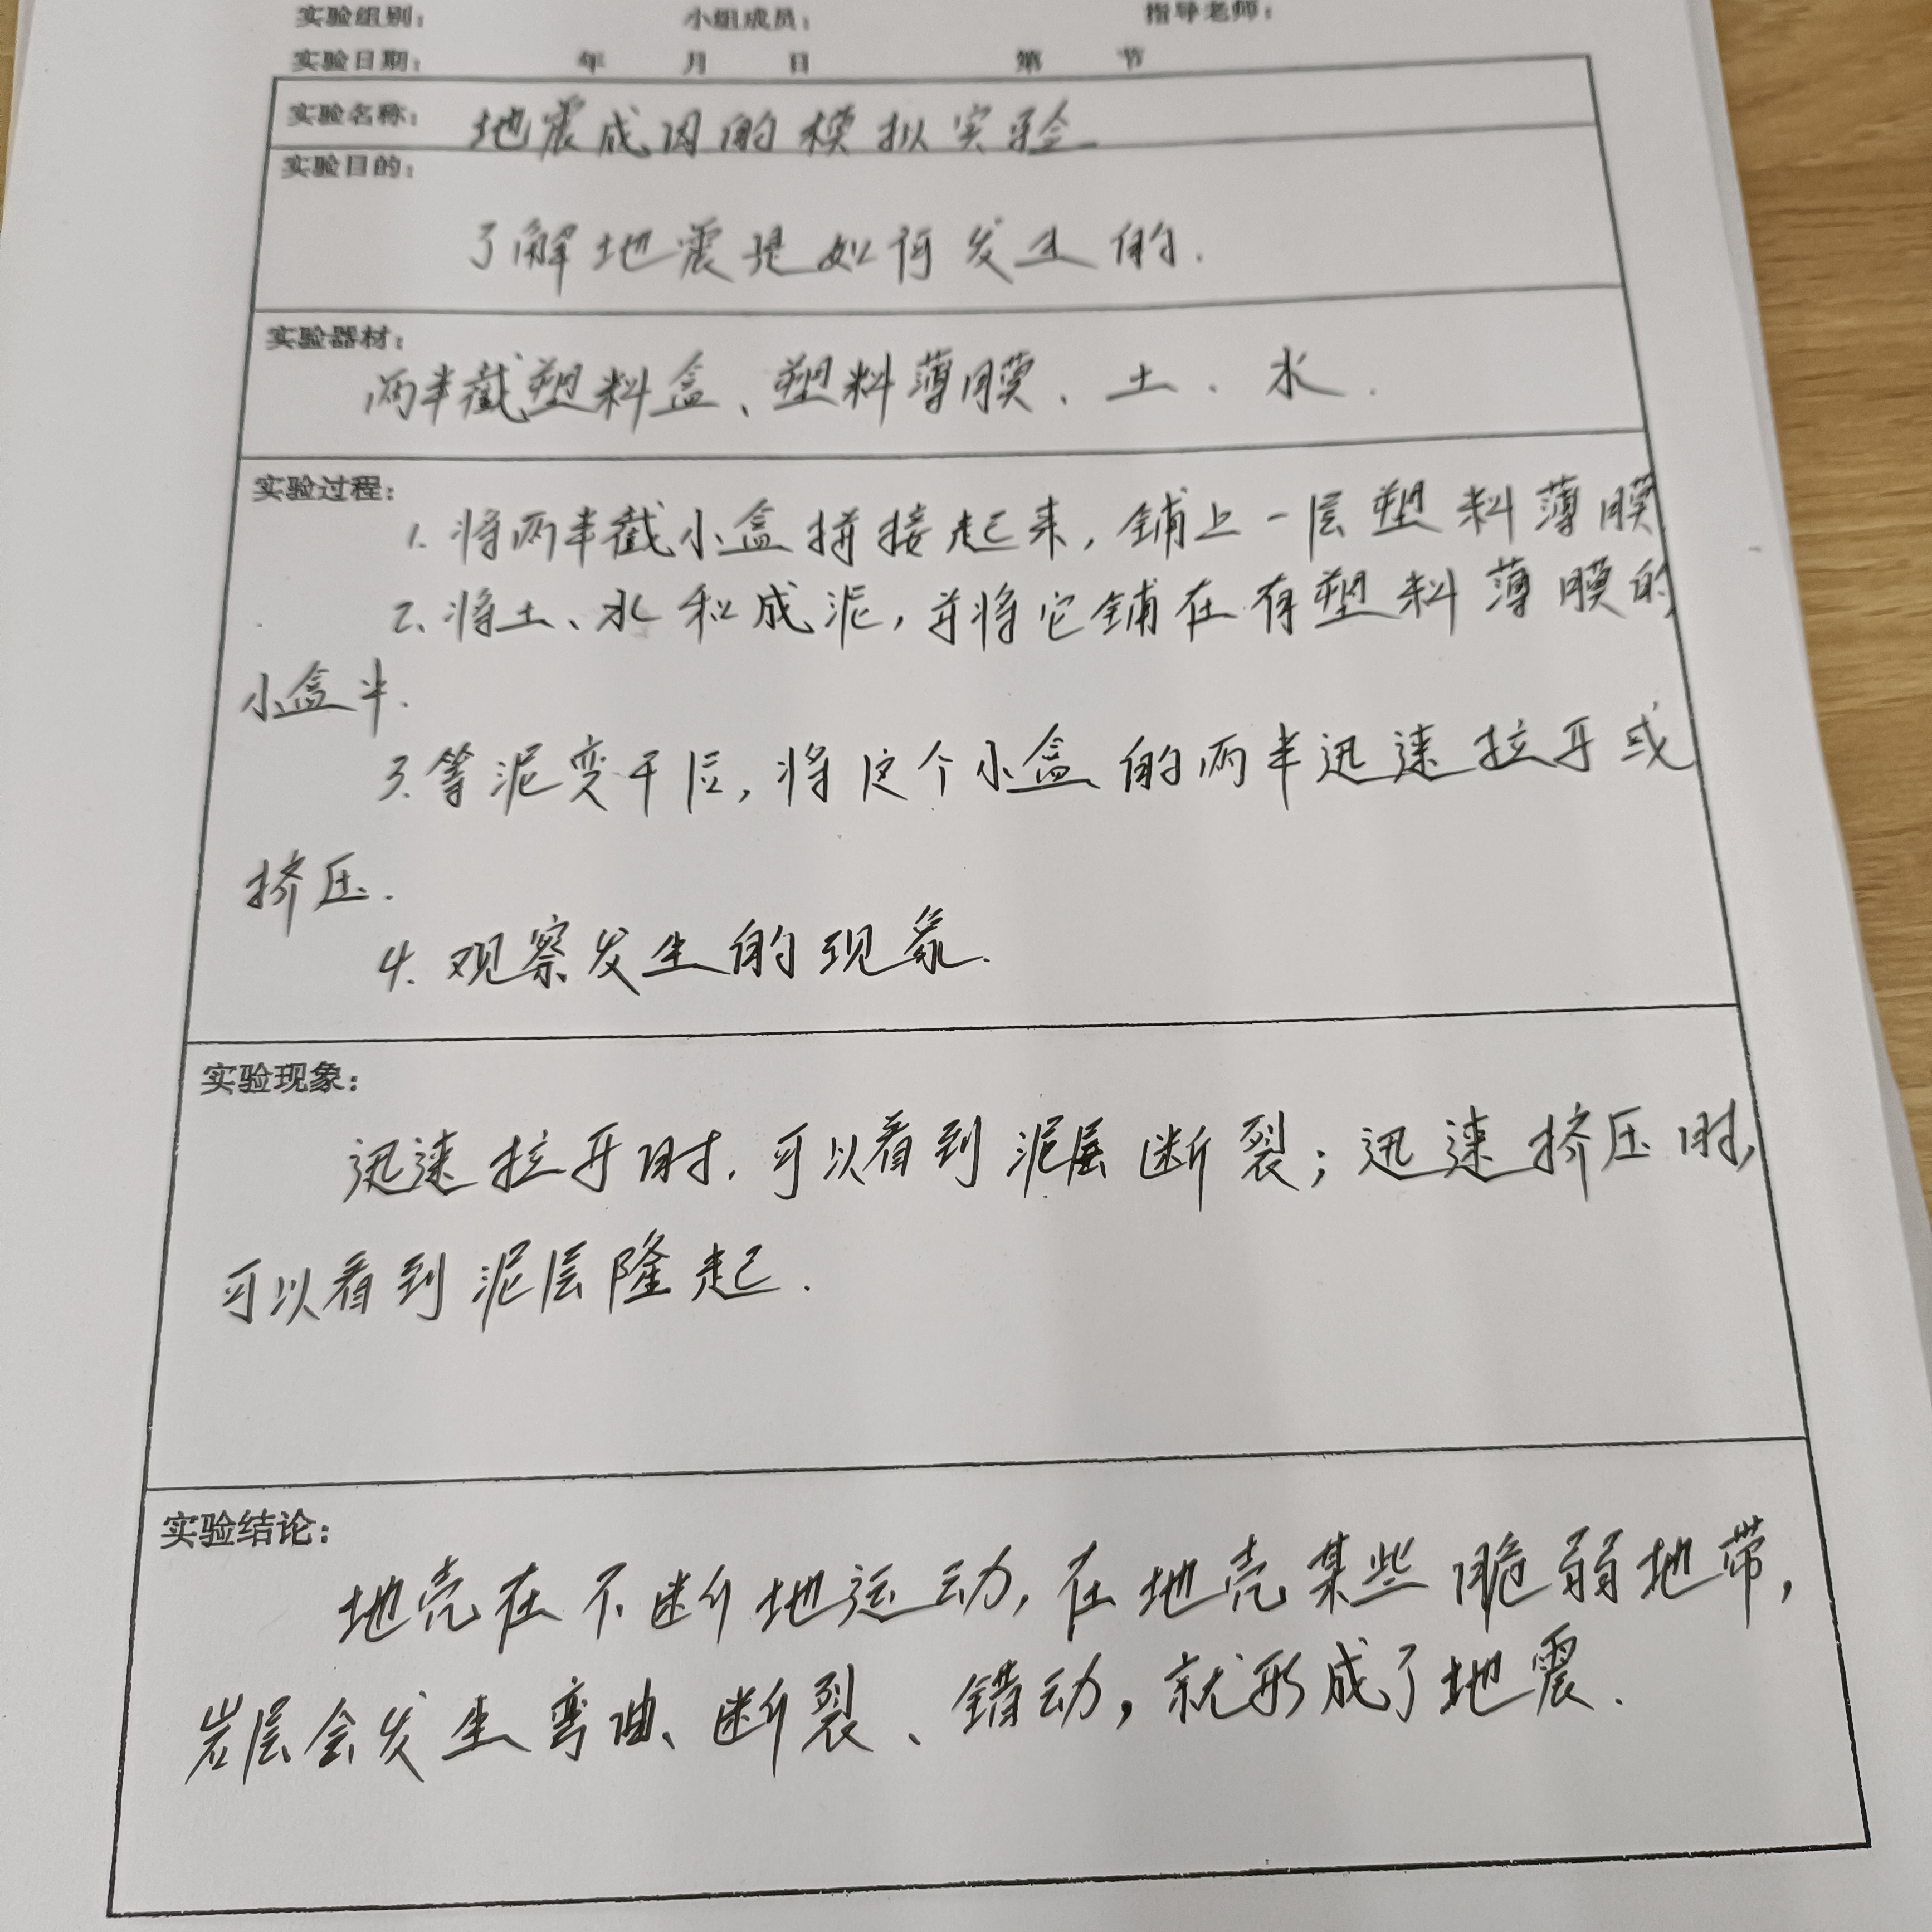 实验组别： 小组成员： 指导老师：
实验日期： 年 月 日 第 节
实验名称： 地震成因的模拟实验
实验目的：
了解地震是如何发生的.
实验器材：
两半截塑料盒、塑料薄膜、土、水.
实验过程：
1. 将两半截小盒拼接起来，铺上一层塑料薄膜
2. 将土、水和成泥，并将它铺在有塑料薄膜的
小盒中.
3. 等泥变干后，将这个小盒的两半迅速拉开或
挤压.
4. 观察发生的现象.
实验现象：
迅速拉开时，可以看到泥层断裂；迅速挤压时，
可以看到泥层隆起.
实验结论：
地壳在不断地运动，在地壳某些脆弱地带，
岩层会发生弯曲、断裂、错动，就形成了地震.